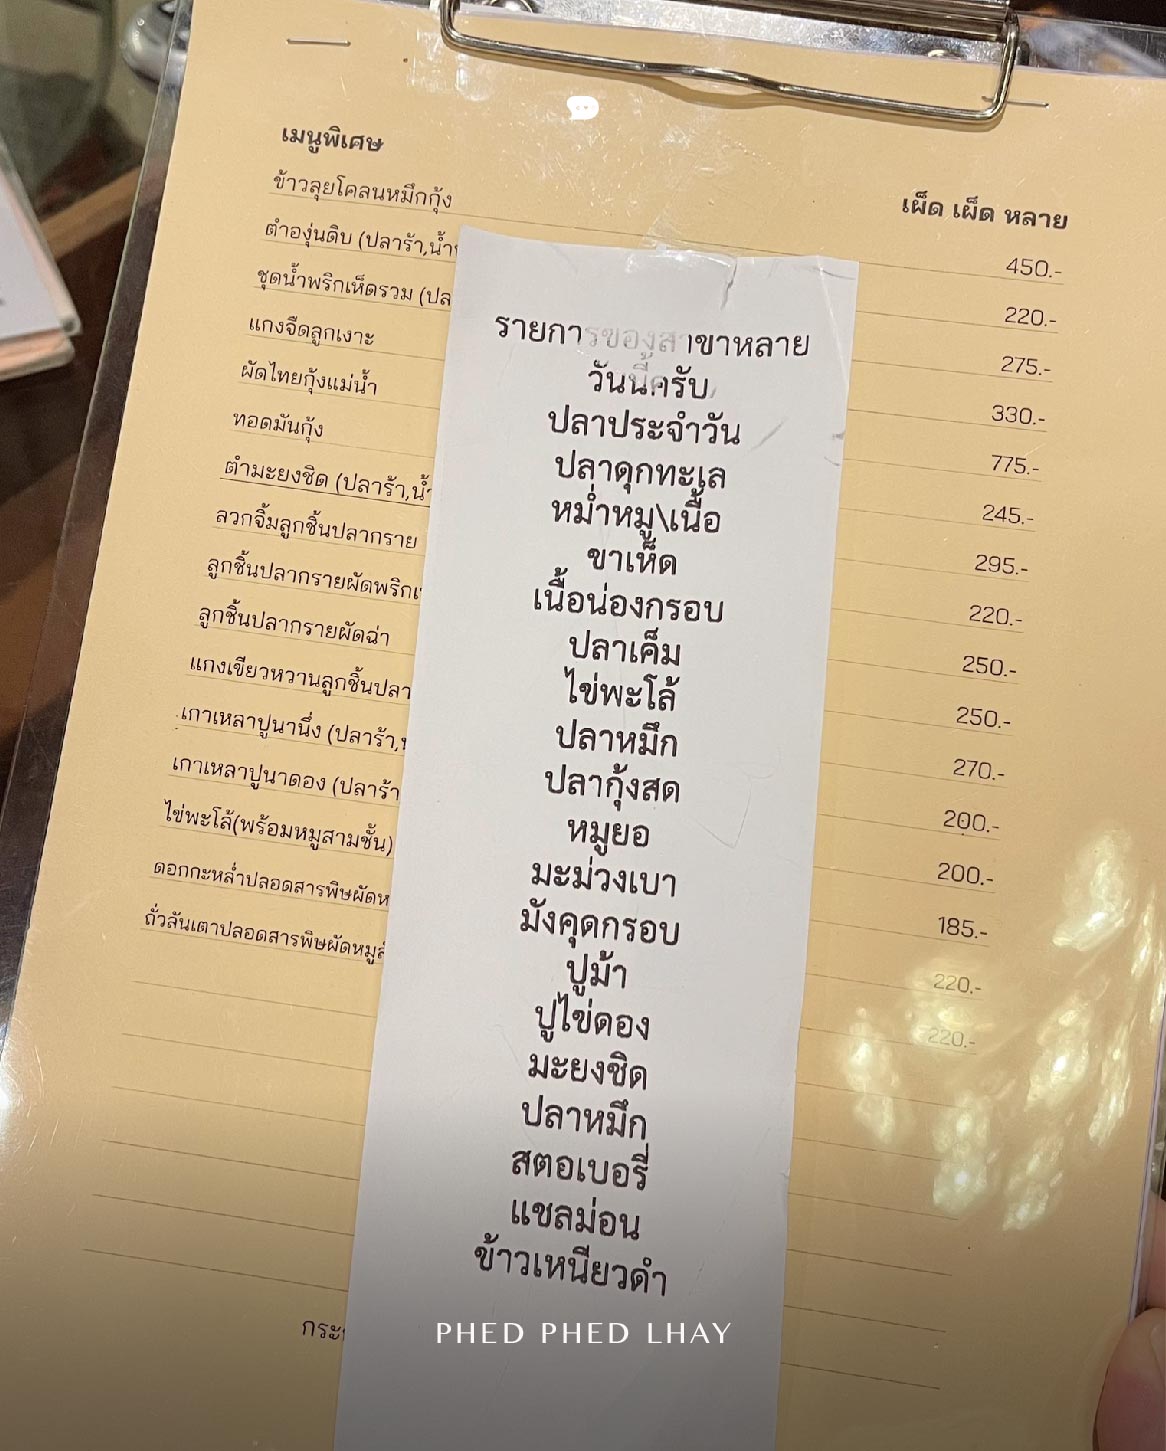 เมนูพิเศษ
เผ็ด เผ็ด หลาย
ข้าวลุยโคลนหมึกกุ้ง
450.-
ตำองุ่นดิบ (ปลาร้า,น้ำ
220.-
ชุดน้ำพริกเห็ดรวม (ปลา
275.-
แกงจืดลูกเงาะ
330.-
ผัดไทยกุ้งแม่น้ำ
775.-
ทอดมันกุ้ง
245.-
ตำมะยงชิด (ปลาร้า,น้ำ
295.-
ลวกจิ้มลูกชิ้นปลากราย
220.-
ลูกชิ้นปลากรายผัดพริก
250.-
ลูกชิ้นปลากรายผัดฉ่า
250.-
แกงเขียวหวานลูกชิ้นปลา
270.-
เกาเหลาปูนานึ่ง (ปลาร้า,
200.-
เกาเหลาปูนาดอง (ปลาร้า
200.-
ไข่พะโล้(พร้อมหมูสามชั้น)
185.-
ดอกกะหล่ำปลอดสารพิษผัด
220.-
ถั่วลันเตาปลอดสารพิษผัดหมู
220.-
รายการของสาขาหลาย
วันนี้ครับ
ปลาประจำวัน
ปลาดุกทะเล
หม่ำหมู\เนื้อ
ขาเห็ด
เนื้อน่องกรอบ
ปลาเค็ม
ไข่พะโล้
ปลาหมึก
ปลากุ้งสด
หมูยอ
มะม่วงเบา
มังคุดกรอบ
ปูม้า
ปูไข่ดอง
มะยงชิด
ปลาหมึก
สตอเบอรี่
แซลม่อน
ข้าวเหนียวดำ
PHED PHED LHAY